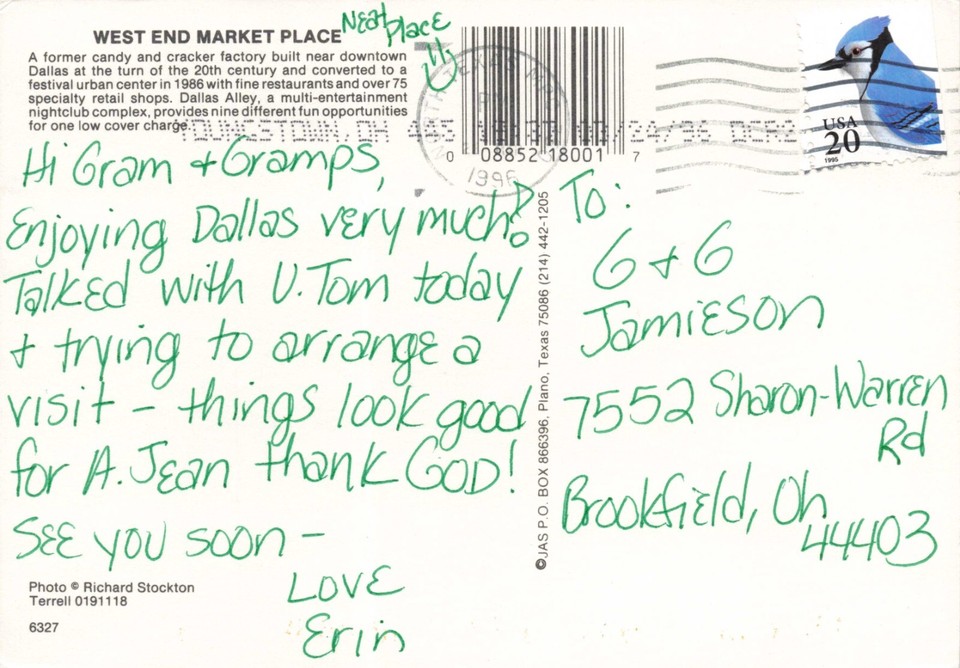 WEST END MARKET PLACE
Neat Place
A former candy and cracker factory built near downtown
Dallas at the turn of the 20th century and converted to a
festival urban center in 1986 with fine restaurants and over 75
specialty retail shops. Dallas Alley, a multi-entertainment
nightclub complex, provides nine different fun opportunities
for one low cover charge.
Hi Gram + Gramps,
Enjoying Dallas very much!
Talked with U. Tom today
+ trying to arrange a
visit – things look good
for A. Jean thank GOD!
SEE you soon –
LOVE
Erin
Photo © Richard Stockton
Terrell 0191118
6327
0 08852 18001 7
TEXAS
1996
©JAS P.O. BOX 866396, Plano, Texas 75086 (214) 442-1205
USA
20
1995
To:
G + G
Jamieson
7552 Sharon-Warren
Rd
Brookfield, Oh
44403